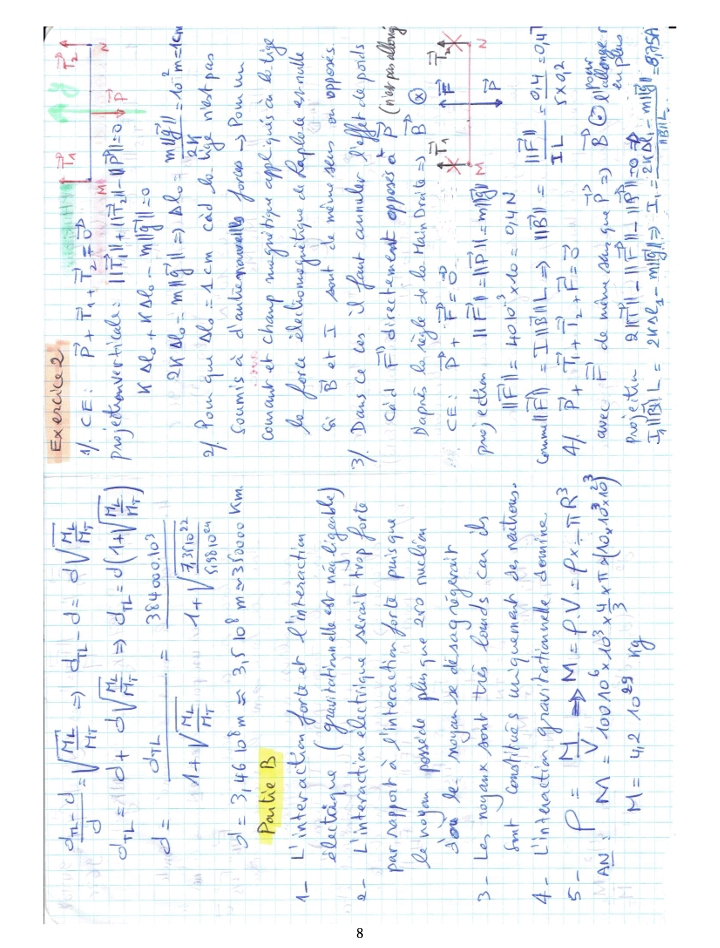 (d_TL - d)/d = √(M_L/M_T) ⇒ d_TL - d = d√(M_L/M_T)
d_TL = d + d√(M_L/M_T) ⇒ d_TL = d(1+√(M_L/M_T))
d = d_TL/(1+√(M_L/M_T)) = 384000.10³/(1+√(7,35 10²²/5,98 10²⁴))
d = 3,46 10⁸ m ≈ 3,5 10⁸ m ≈ 350000 Km.
Partie B
1- L'interaction forte et l'interaction
électrique (gravitationnelle est négligeable)
2- L'interaction électrique serait trop forte
par rapport à l'interaction forte puisque
le noyau possède plus que 210 nucléon
d'où le noyau se désagrégerait
3- Les noyaux sont très lourds car ils
sont constitués uniquement de neutrons.
4- L'interaction gravitationnelle domine
5- ρ = M/V ⇒ M = ρ.V = ρ × 4/3 πR³
AN: M = 100 10⁶ × 10³ × 4/3 × π × (10 × 10³)³
M = 4,2 10²⁹ kg
Exercice 2
1/. CE: P⃗ + T⃗1 + T⃗2 = 0⃗
T⃗1 T⃗2 M N P⃗
projection verticale: ||T⃗1|| + ||T⃗2|| - ||P⃗|| = 0
KΔl₀ + KΔl₀ - m||g⃗|| = 0
2KΔl₀ = m||g⃗|| ⇒ Δl₀ = m||g⃗||/2K = 10⁻² m = 1cm
2/ Pour que Δl₀ = 1 cm càd la tige n'est pas
soumis à d'autre nouvelles forces → Pour un
courant et champ magnétique appliqués à la tige
la force électromagnétique de Laplace est nulle
si B⃗ et I sont de même sens ou opposés.
3/. Dans ce cas il faut annuler l'effet de poids
càd F⃗ directement opposés à P⃗ (n'est pas allongé
D'après la règle de la Main Droite ⇒ B⃗ ⊗
CE: P⃗ + F⃗ = 0⃗
T⃗1 F⃗ T⃗2 M N P⃗
projection ||F⃗|| = ||P⃗|| = m||g⃗||
||F⃗|| = 40 10⁻³ × 10 = 0,4 N
Comme ||F⃗|| = I||B⃗||L ⇒ ||B⃗|| = ||F⃗||/IL = 0,4/(5×0,2) = 0,4T
4/. P⃗ + T⃗1 + T⃗2 + F⃗ = 0⃗
avec F⃗ de même sens que P⃗ ⇒ B⃗ ⊙ pour l'allonger en plus
Projection 2||T⃗|| - ||F⃗|| - ||P⃗|| = 0 ⇒
I₁||B⃗||L = 2KΔl₁ - m||g⃗|| ⇒ I₁ = (2KΔl₁ - m||g⃗||)/||B⃗||L = 8,75A
8